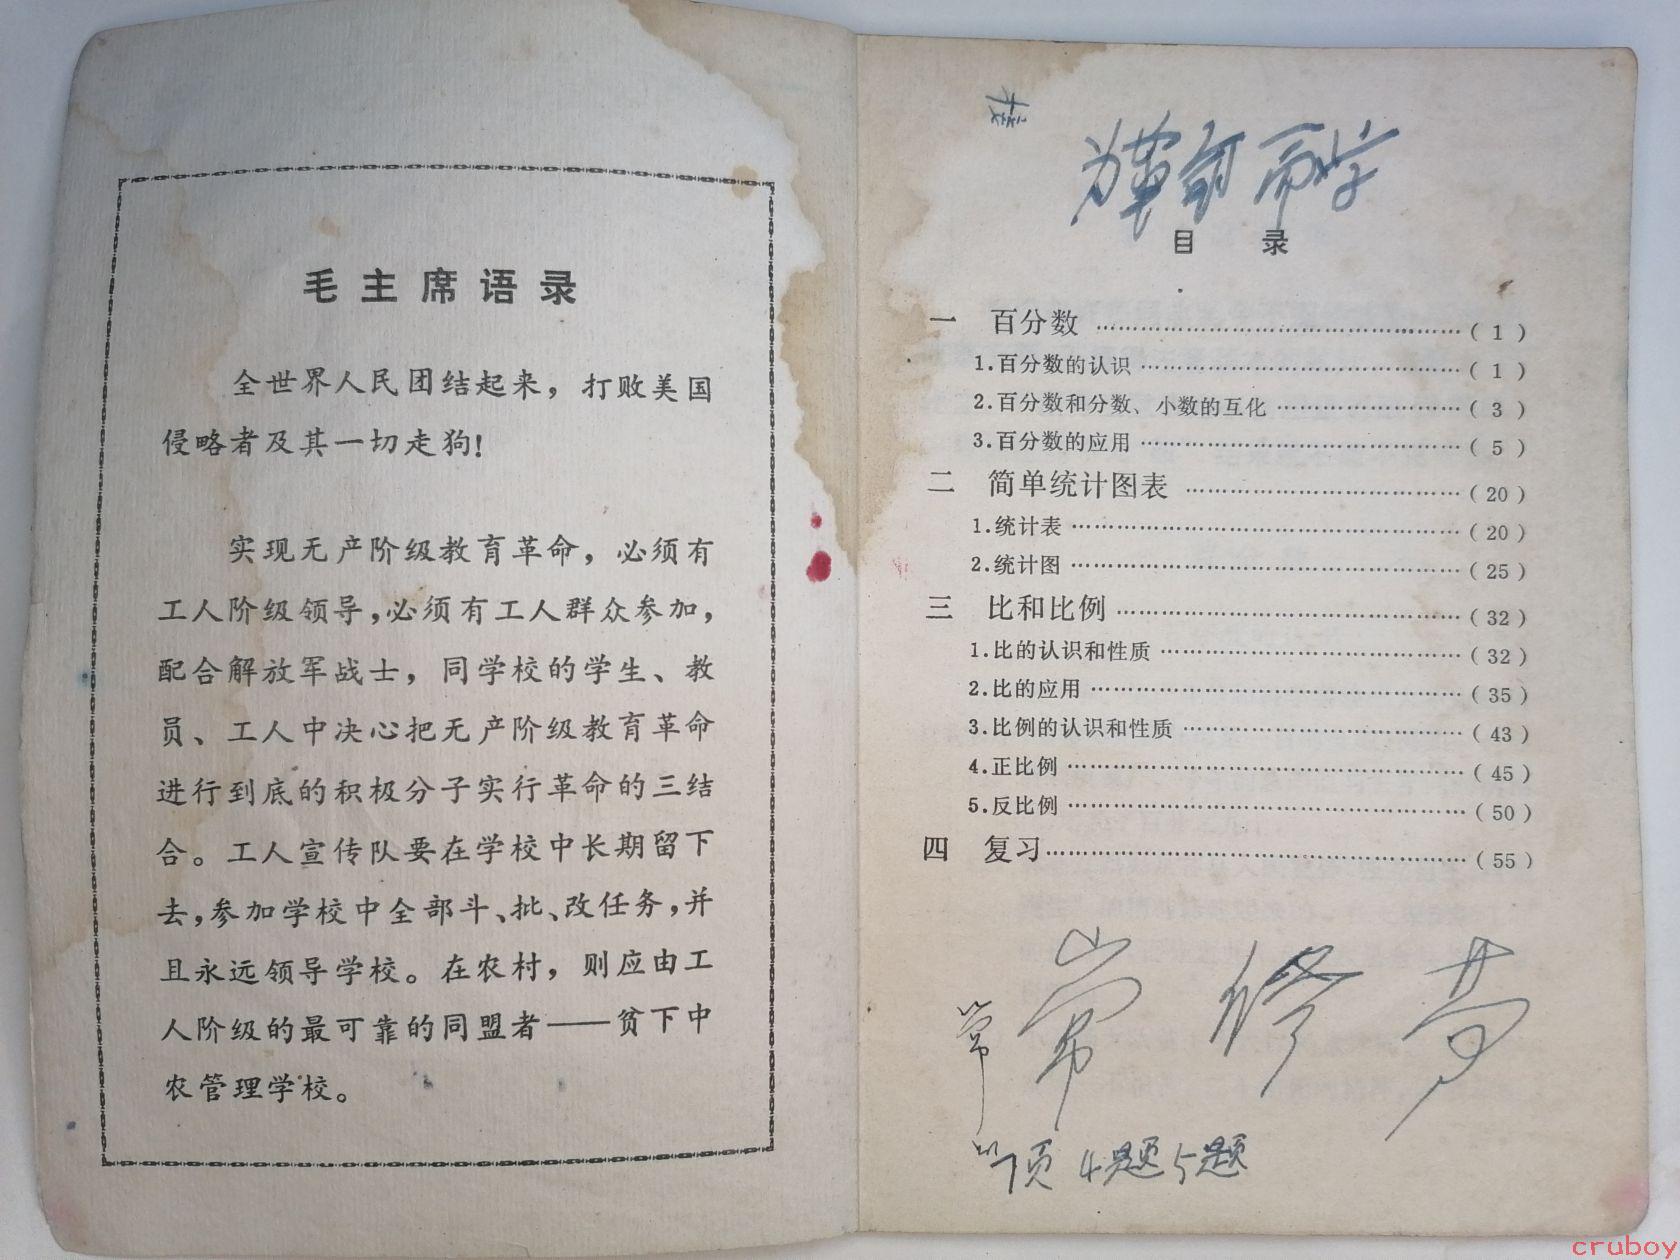 毛主席语录
全世界人民团结起来，打败美国
侵略者及其一切走狗！
实现无产阶级教育革命，必须有
工人阶级领导，必须有工人群众参加，
配合解放军战士，同学校的学生、教
员、工人中决心把无产阶级教育革命
进行到底的积极分子实行革命的三结
合。工人宣传队要在学校中长期留下
去，参加学校中全部斗、批、改任务，并
且永远领导学校。在农村，则应由工
人阶级的最可靠的同盟者——贫下中
农管理学校。
为革命而学
目 录
一 百分数 ……………………………………（ 1 ）
1.百分数的认识 ……………………………………（ 1 ）
2.百分数和分数、小数的互化 ……………………（ 3 ）
3.百分数的应用 ……………………………………（ 5 ）
二 简单统计图表 ……………………………（20 ）
1.统计表 ……………………………………………（20 ）
2.统计图 ……………………………………………（25 ）
三 比和比例 …………………………………（32 ）
1.比的认识和性质 …………………………………（32 ）
2.比的应用 …………………………………………（35 ）
3.比例的认识和性质 ………………………………（43 ）
4.正比例 ……………………………………………（45 ）
5.反比例 ……………………………………………（50 ）
四 复习………………………………………（55 ）
常修
常
7页 4题5题
cruboy